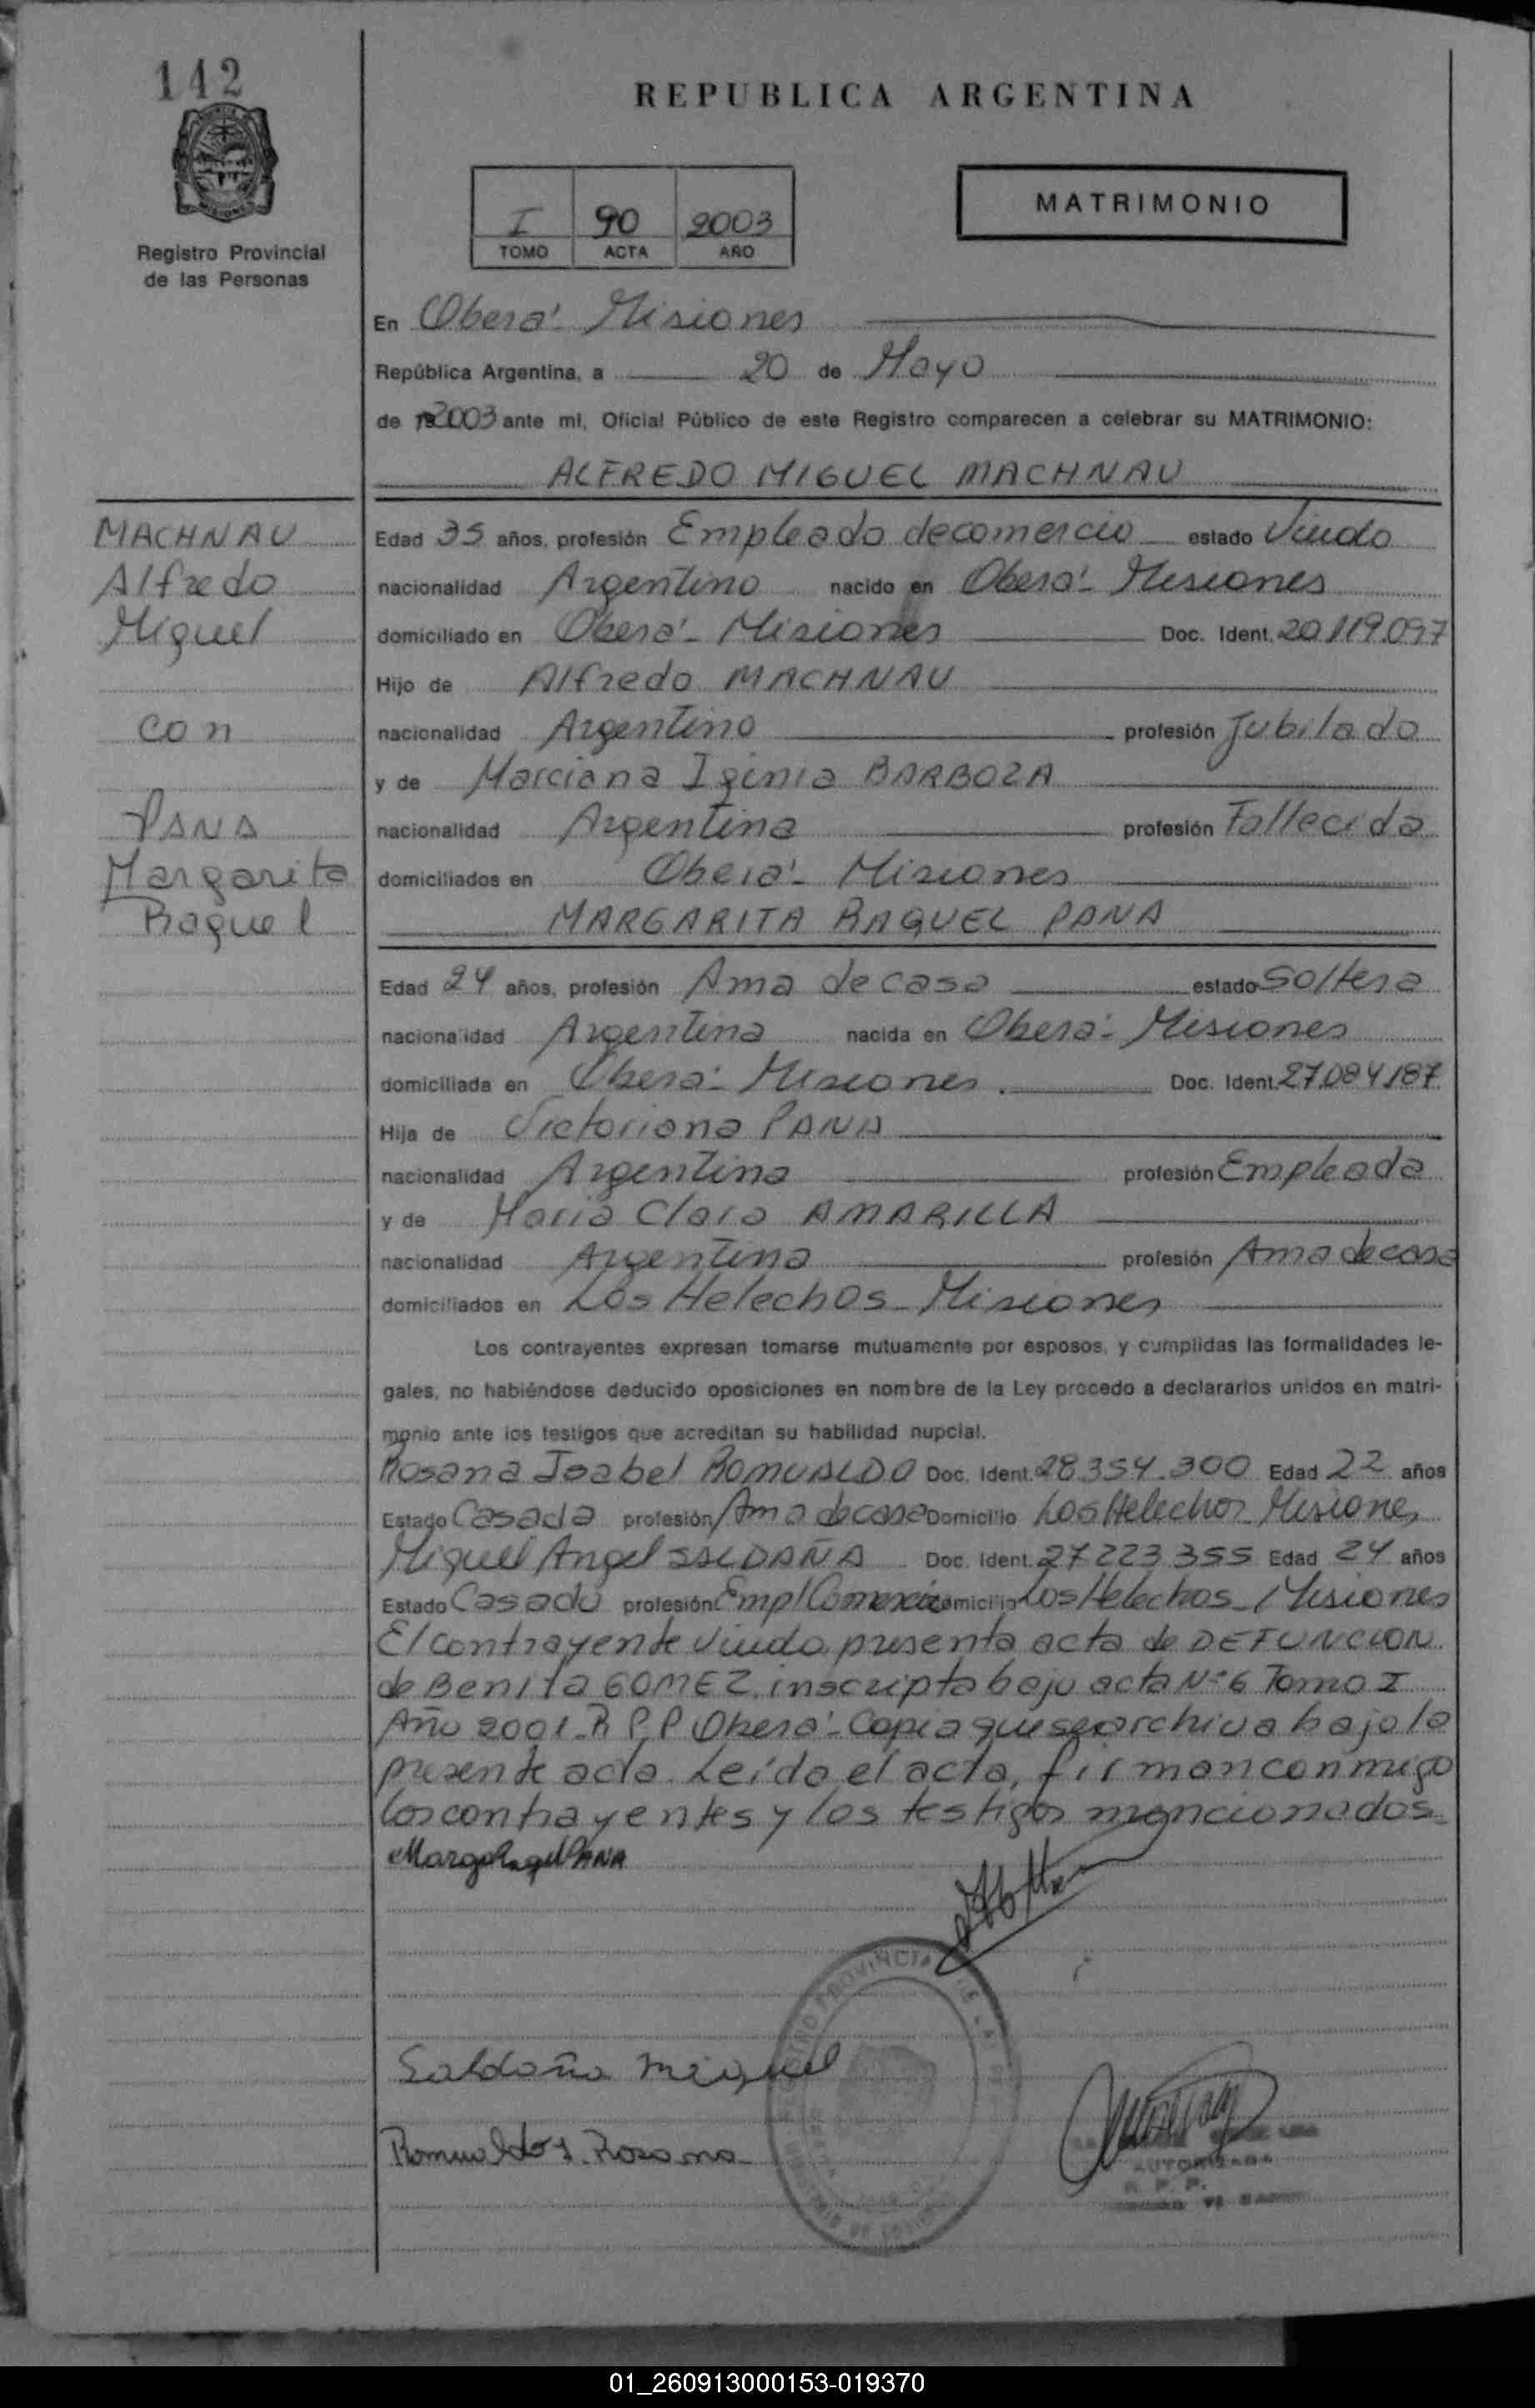 142
REPUBLICA ARGENTINA
MATRIMONIO
I 90 2003
TOMO ACTA AÑO
Registro Provincial
de las Personas
En Oberá - Misiones
República Argentina, a 20 de Mayo
de 2003 ante mi, Oficial Público de este Registro comparecen a celebrar su MATRIMONIO:
ALFREDO MIGUEL MACHNAU
MACHNAU
Alfredo
Miguel
con
PANA
Margarita
Raquel
Edad 35 años, profesión Empleado de comercio estado Viudo
nacionalidad Argentino nacido en Oberá - Misiones
domiciliado en Oberá - Misiones Doc. Ident. 20.119.097
Hijo de Alfredo MACHNAU
nacionalidad Argentino profesión Jubilado
y de Marciana Iginia BARBOZA
nacionalidad Argentina profesión Fallecida
domiciliados en Oberá - Misiones
MARGARITA RAQUEL PANA
Edad 24 años, profesión Ama de casa estado Soltera
nacionalidad Argentina nacida en Oberá - Misiones
domiciliada en Oberá - Misiones Doc. Ident. 27.084.187
Hija de Victoriana PANA
nacionalidad Argentina profesión Empleada
y de Maria Clara AMARILLA
nacionalidad Argentina profesión Ama de casa
domiciliados en Los Helechos - Misiones
Los contrayentes expresan tomarse mutuamente por esposos, y cumplidas las formalidades le-
gales, no habiéndose deducido oposiciones en nombre de la Ley procedo a declararlos unidos en matri-
monio ante los testigos que acreditan su habilidad nupcial.
Rosana Isabel ROMUALDO Doc. Ident. 28.354.300 Edad 22 años
Estado Casada profesión Ama de casa Domicilio Los Helechos - Misiones
Miguel Angel SALDAÑA Doc. Ident. 27.223.355 Edad 24 años
Estado Casado profesión Empl Comercio Domicilio Los Helechos - Misiones
El contrayente viudo presenta acta de DEFUNCION
de Benita GOMEZ inscripta bajo acta Nº 6 Tomo I
Año 2001 - R P P Oberá - Copia que se archiva bajo la
presente acta. Leída el acta, firman conmigo
los contrayentes y los testigos mencionados.
PANA
Saldaña Miguel
Romualdo Rosana
AUTORIZADA
R. P. P.
01_260913000153-019370